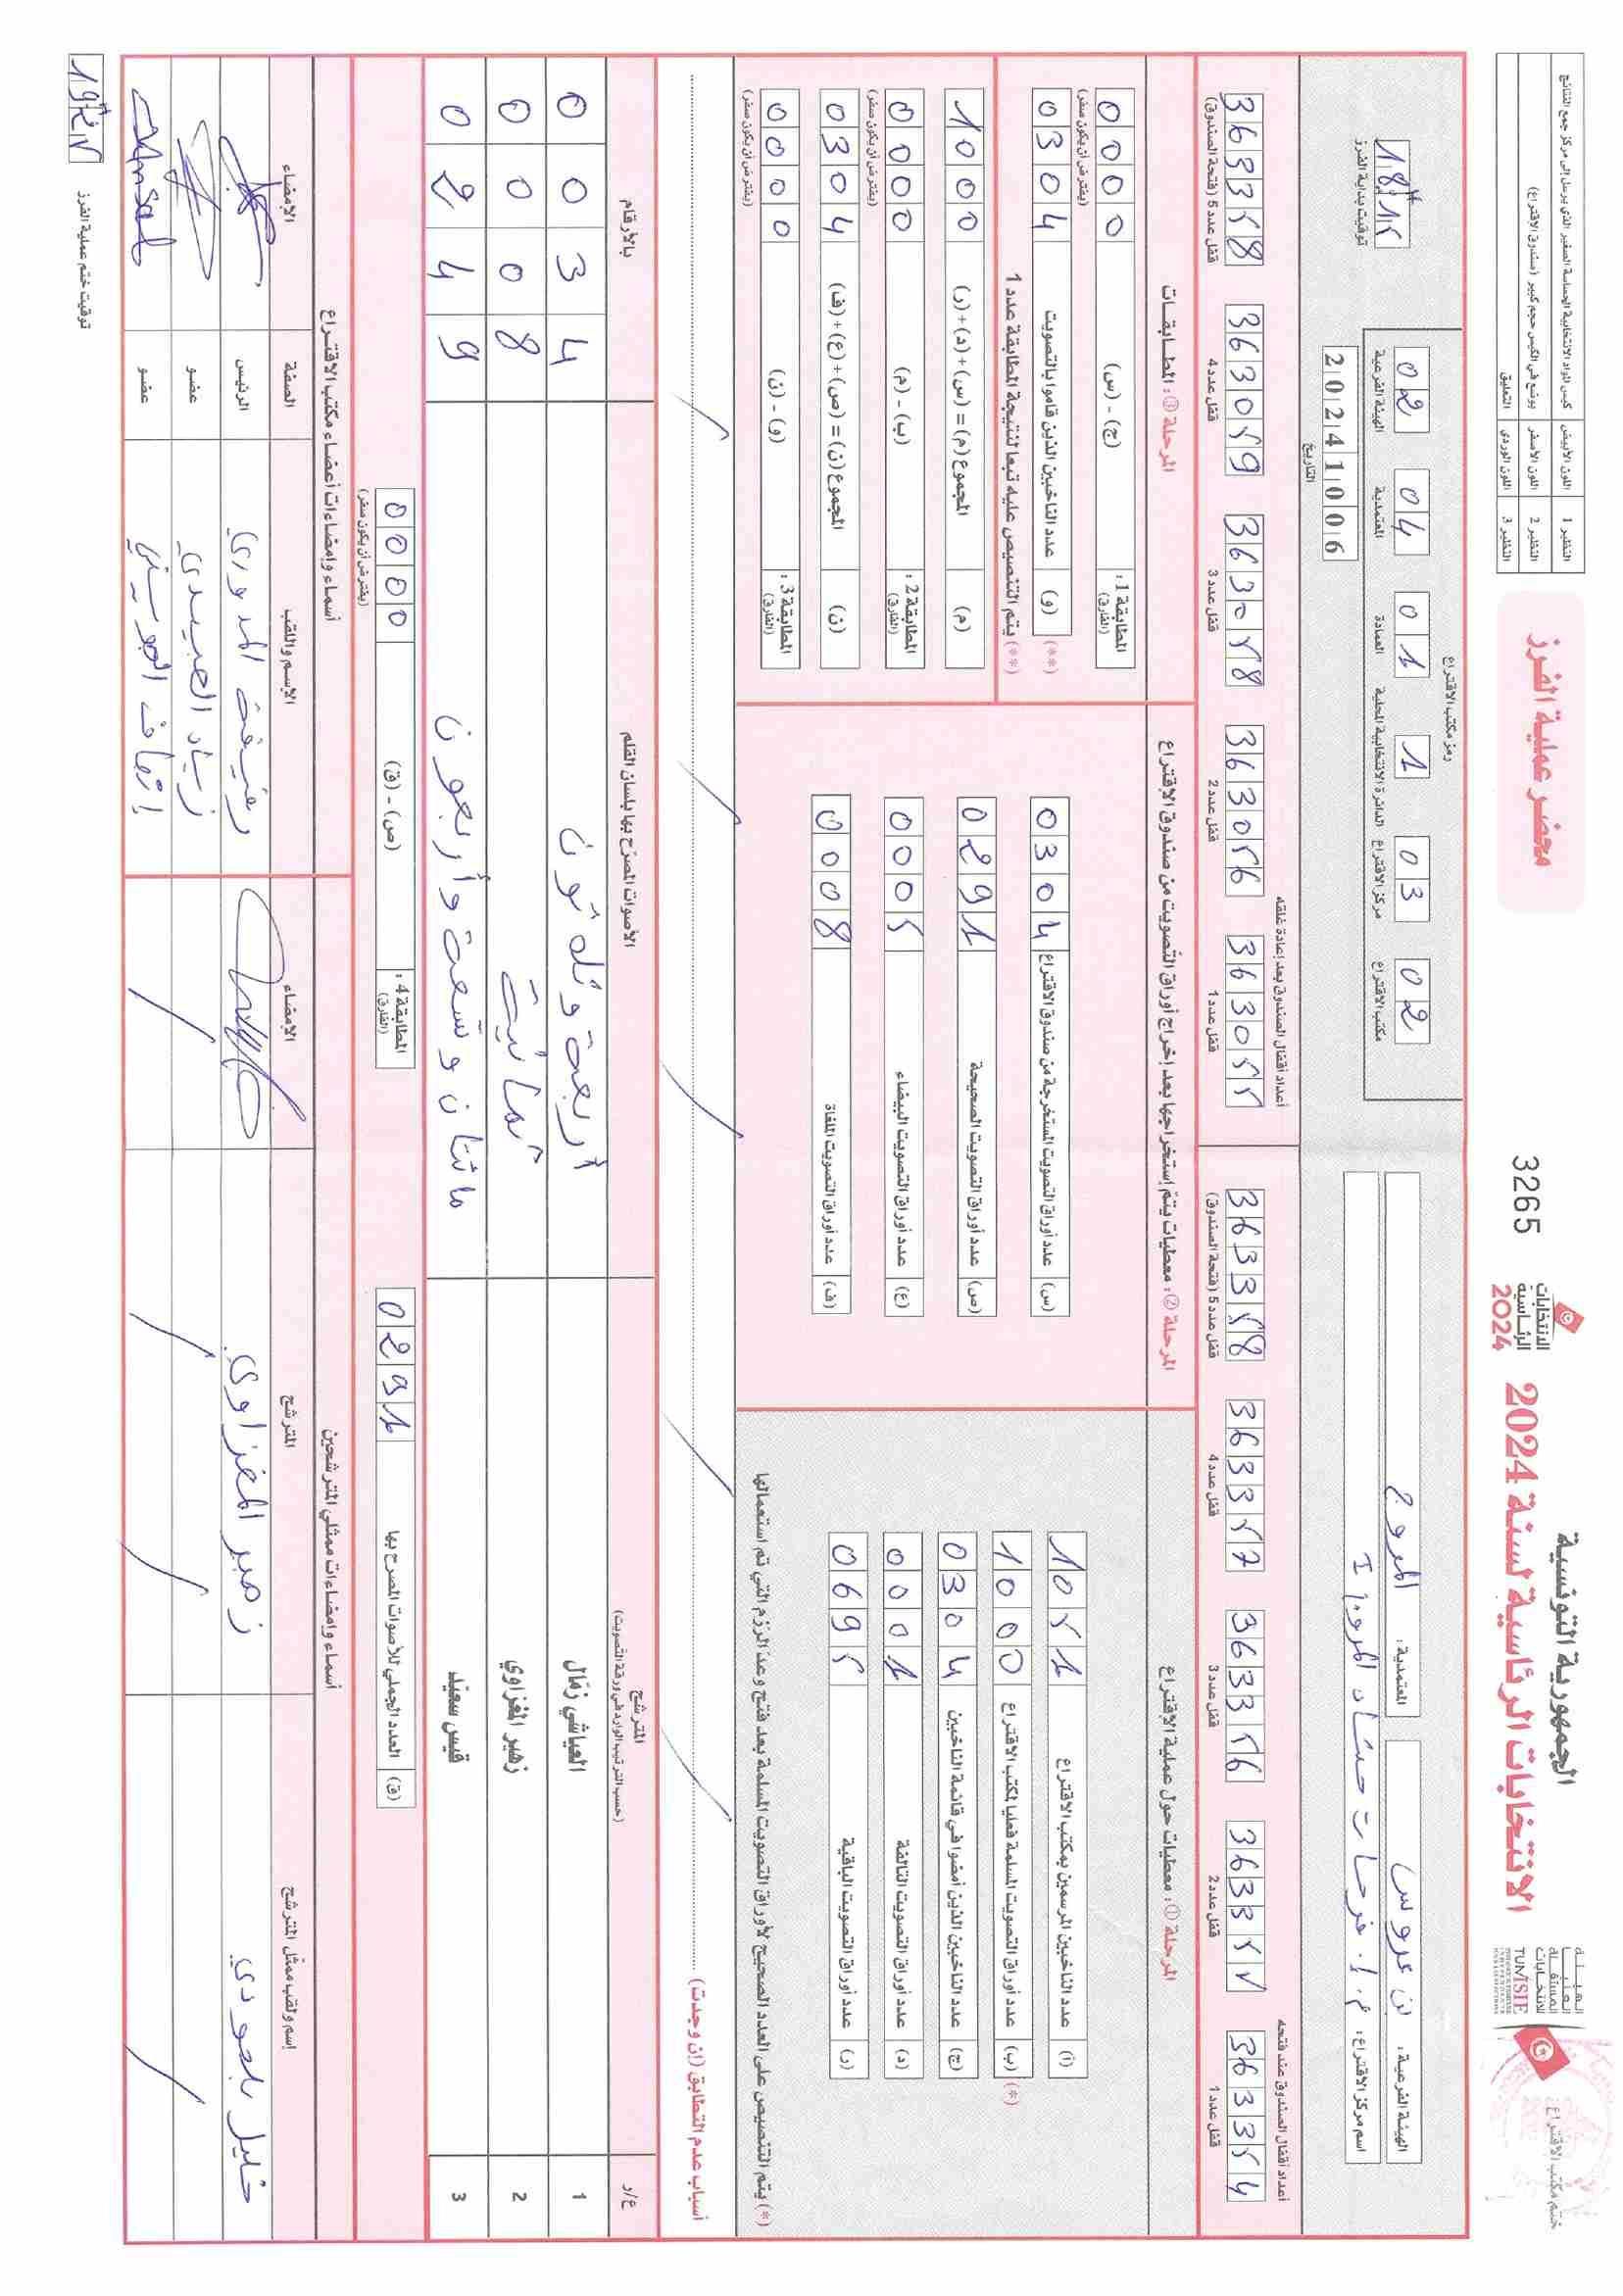 الجمهورية التونسية
الانتخابات الرئاسية لسنة 2024
الهيئة العليا المستقلة للانتخابات
TUNISIE
ختم مكتب الاقتراع
الانتخابات الرئاسية 2024
3265
محضر عملية الفرز
النظير 1 اللون الأبيض كيس المواد الانتخابية الحساسة الصغير الذي يرسل إلى مركز جمع النتائج
النظير 2 اللون الأصفر يوضع في الكيس حجم كبير (صندوق الاقتراع)
النظير 3 اللون الوردي التعليق
الهيئة الفرعية: بن عروس
المعتمدية: المروج
اسم مركز الاقتراع: م.إ. فرحات حشاد المروج I
رمز مكتب الاقتراع
02 04 01 1 03 02
الهيئة الفرعية المعتمدية العمادة الدائرة الانتخابية المحلية مركز الاقتراع مكتب الاقتراع
20241006
التاريخ
18H15
توقيت بداية الفرز
أعداد أقفال الصندوق عند فتحه
3633554 363355 3633556 3633557 3633558
قفل عدد 1 قفل عدد 2 قفل عدد 3 قفل عدد 4 قفل عدد 5 (فتحة الصندوق)
أعداد أقفال الصندوق بعد إعادة غلقه
363055 363056 363058 363059 363358
قفل عدد 1 قفل عدد 2 قفل عدد 3 قفل عدد 4 قفل عدد 5 (فتحة الصندوق)
المرحلة ①: معطيات حول عملية الاقتراع
(أ) عدد الناخبين المرسمين بمكتب الاقتراع 1051
(ب) عدد أوراق التصويت المسلمة فعليا لمكتب الاقتراع 1000 (*)
(ج) عدد الناخبين الذين أمضوا في قائمة الناخبين 0304
(د) عدد أوراق التصويت التالفة 0001
(ر) عدد أوراق التصويت الباقية 0695
(*) يتم التنصيص على العدد الصحيح لأوراق التصويت المسلمة بعد فتح وعدّ الرزم التي تم استعمالها
المرحلة ②: معطيات يتم إستخراجها بعد إخراج أوراق التصويت من صندوق الاقتراع
(س) عدد أوراق التصويت المستخرجة من صندوق الاقتراع 0304
(ص) عدد أوراق التصويت الصحيحة 0291
(ع) عدد أوراق التصويت البيضاء 0005
(ف) عدد أوراق التصويت الملغاة 0008
المرحلة ③: المطابقات
المطابقة 1: (الفارق) (ج) - (س) 0000
(يفترض أن يكون صفر)
(**) (و) عدد الناخبين الذين قاموا بالتصويت 0304
(**) يتم التنصيص عليه تبعا لنتيجة المطابقة عدد 1
(م) المجموع (م) = (س)+(د)+(ر) 1000
المطابقة 2: (الفارق) (ب) - (م) 0000
(يفترض أن يكون صفر)
(ن) المجموع (ن) = (ص)+(ع)+(ف) 0304
المطابقة 3: (الفارق) (و) - (ن) 0000
(يفترض أن يكون صفر)
أسباب عدم التطابق (إن وجدت)
ع/ر المترشح (حسب الترتيب الوارد في ورقة التصويت) الأصوات المصرّح بها بلسان القلم بالأرقام
1 العياشي زمّال أربعة وثلاثون 0034
2 زهير المغزاوي ثمانية 0008
3 قيس سعيّد مائتان وتسعة وأربعون 0249
(ق) العدد الجملي للأصوات المصرح بها 0291
المطابقة 4: (الفارق) (ص) - (ق) 0000
(يفترض أن يكون صفر)
أسماء وإمضاءات ممثلي المترشحين
إسم ولقب ممثل المترشح المترشح الإمضاء
زهير المغزاوي
أسماء وإمضاءات أعضاء مكتب الاقتراع
الإسم واللقب الصفة الإمضاء
الرئيس
زياد العبيدي عضو
عضو
توقيت ختم عملية الفرز